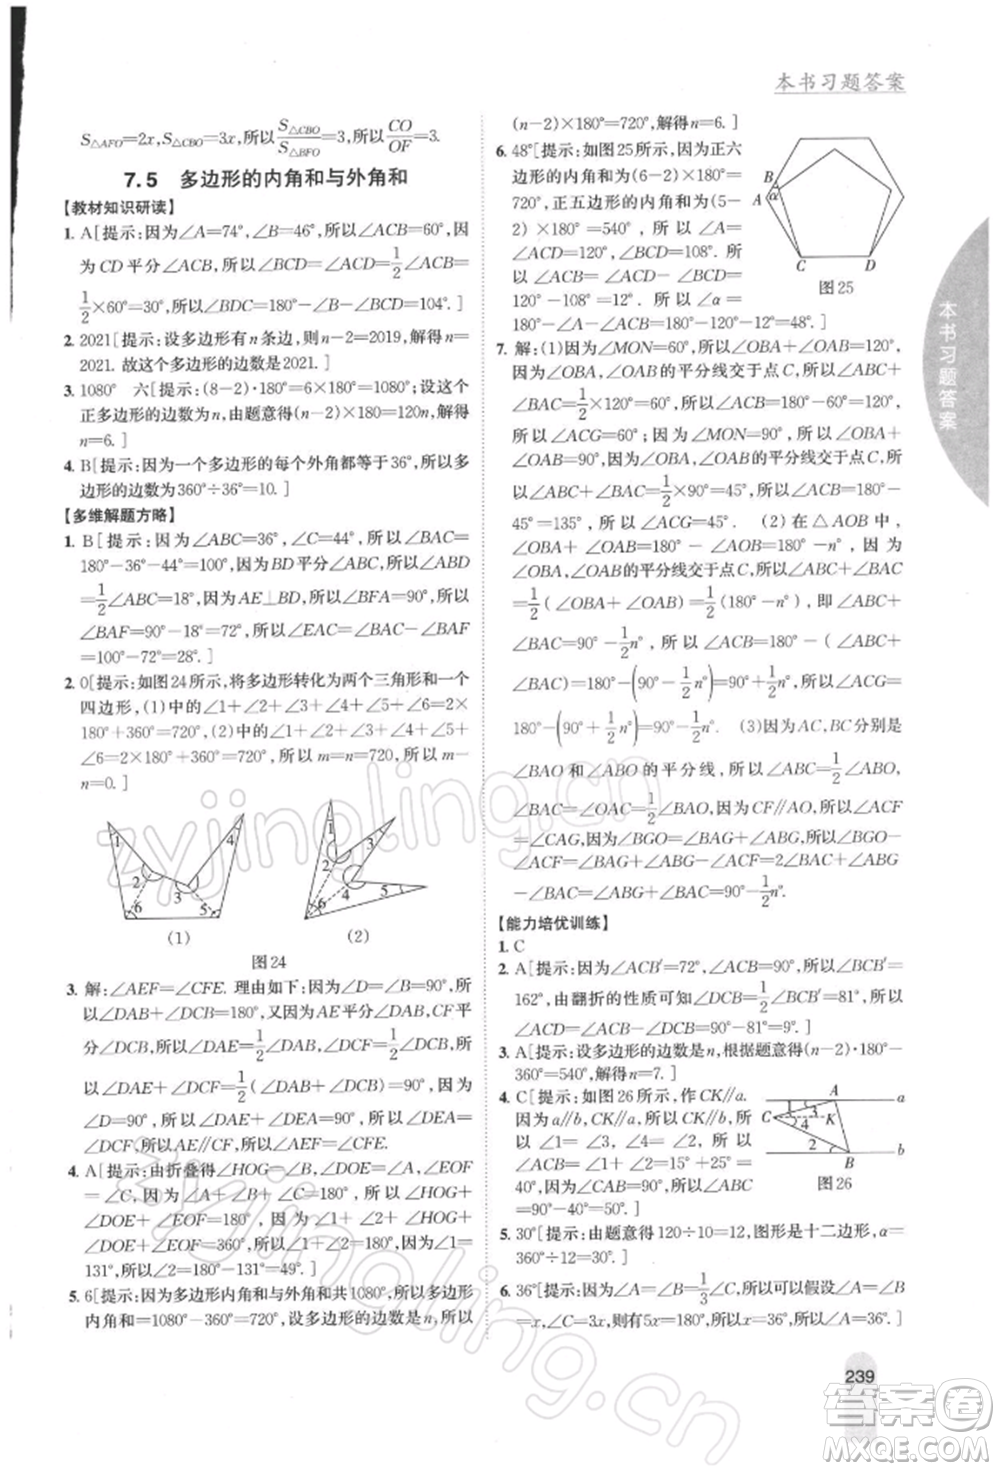 本书习题答案
S△AFO=2x,S△CBO=3x,所以S△CBO/S△BFO=3,所以CO/OF=3.
7.5 多边形的内角和与外角和
【教材知识研读】
1. A[提示:因为∠A=74°,∠B=46°,所以∠ACB=60°,因
为CD平分∠ACB,所以∠BCD=∠ACD=1/2∠ACB=
1/2×60°=30°,所以∠BDC=180°-∠B-∠BCD=104°.]
2. 2021[提示:设多边形有n条边,则n-2=2019,解得n=
2021.故这个多边形的边数是2021.]
3. 1080° 六[提示:(8-2)·180°=6×180°=1080°;设这个
正多边形的边数为n,由题意得(n-2)×180=120n,解得
n=6.]
4. B[提示:因为一个多边形的每个外角都等于36°,所以多
边形的边数为360°÷36°=10.]
【多维解题方略】
1. B[提示:因为∠ABC=36°,∠C=44°,所以∠BAC=
180°-36°-44°=100°.因为BD平分∠ABC,所以∠ABD
=1/2∠ABC=18°,因为AE⊥BD,所以∠BFA=90°,所以
∠BAF=90°-18°=72°,所以∠EAC=∠BAC-∠BAF
=100°-72°=28°.]
2. 0[提示:如图24所示,将多边形转化为两个三角形和一个
四边形,(1)中的∠1+∠2+∠3+∠4+∠5+∠6=2×
180°+360°=720°,(2)中的∠1+∠2+∠3+∠4+∠5+
∠6=2×180°+360°=720°,所以m=n=720,所以m-n
=0.]
1 4 2 3 6 5
(1)
1 2 3 4 5 6
(2)
图24
3. 解:∠AEF=∠CFE.理由如下:因为∠D=∠B=90°,所
以∠DAB+∠DCB=180°,又因为AE平分∠DAB,CF平
分∠DCB,所以∠DAE=1/2∠DAB,∠DCF=1/2∠DCB,所
以∠DAE+∠DCF=1/2(∠DAB+∠DCB)=90°,因为
∠D=90°,所以∠DAE+∠DEA=90°,所以∠DEA=
∠DCF,所以AE∥CF,所以∠AEF=∠CFE.
4. A[提示:由折叠得∠HOG=∠B,∠DOE=∠A,∠EOF
=∠C,因为∠A+∠B+∠C=180°,所以∠HOG+
∠DOE+∠EOF=180°,因为∠1+∠2+∠HOG+
∠DOE+∠EOF=360°,所以∠1+∠2=180°,因为∠1=
131°,所以∠2=180°-131°=49°.]
5. 6[提示:因为多边形内角和与外角和共1080°,所以多边形
内角和=1080°-360°=720°,设多边形的边数是n,所以
(n-2)×180°=720°,解得n=6.]
6. 48°[提示:如图25所示,因为正六
边形的内角和为(6-2)×180°=
720°,正五边形的内角和为(5-
2)×180°=540°,所以∠BCD=
∠ADC=120°,∠ACD=108°,所
以∠BCA=∠ACD-∠BCD=
120°-108°=12°,所以∠α=
180°-120°-12°=48°.]
B A α C D
图25
7. 解:(1)因为∠MON=60°,所以∠OBA+∠OAB=120°,
因为∠OBA,∠OAB的平分线交于点C,所以∠ABC+
∠BAC=1/2×120°=60°,所以∠ACB=180°-60°=120°,所以
∠ACG=60°;因为∠MON=90°,所以∠OBA+
∠OAB=90°,因为∠OBA,∠OAB的平分线交于点C,所
以∠ABC+∠BAC=1/2×90°=45°,所以∠ACB=180°-
45°=135°,所以∠ACG=45°. (2)在△AOB中,
∠OBA+∠OAB=180°-∠AOB=180°-n°,因为
∠OBA,∠OAB的平分线交于点C,所以∠ABC+∠BAC
=1/2(∠OBA+∠OAB)=1/2(180°-n°),即∠ABC+
∠BAC=90°-1/2n°,所以∠ACB=180°-(∠ABC+
∠BAC)=180°-(90°-1/2n°)=90°+1/2n°,所以∠ACG=
180°-(90°+1/2n°)=90°-1/2n°. (3)因为AC,BC分别是
∠BAO和∠ABO的平分线,所以∠ABC=1/2∠ABO,
∠BAC=∠OAC=1/2∠BAO,因为CF∥OA,所以∠ACF
=∠CAG,所以∠BGO=∠BAG+∠ABG,所以∠BGO
-∠ACF=∠BAG+∠ABG-∠ACF=2∠BAC+∠ABG
-∠BAC=∠ABG+∠BAC=90°-1/2n°.
【能力培优训练】
1. C
2. A[提示:因为∠ACB′=72°,∠ACB=90°,所以∠BCB′=
162°,由翻折的性质可知∠DCB=1/2∠BCB′=81°,所以
∠ACD=∠ACB-∠DCB=90°-81°=9°.]
3. A[提示:设多边形的边数是n,根据题意得(n-2)·180°-
360°=540°,解得n=7.]
4. C[提示:如图26所示,作CK∥a.
因为a∥b,CK∥a,所以CK∥b,所
以∠1=∠3,∠4=∠2,所以
∠ACB=∠1+∠2=90°,因为∠1=
40°,因为∠ACB=90°,所以∠2=
90°-40°=50°.]
A a C 1 3 K 4 2 B b
图26
5. 30°[提示:由题意得120÷10=12,图形是十二边形,α=
360°÷12=30°.]
6. 36°[提示:因为∠A=∠B=1/3∠C,所以可以假设∠A=∠B
=x,∠C=3x,则有5x=180°,所以x=36°,所以∠A=36°.]
本书习题答案
239
zyjingling.cn
zyjingling.cn
答案卷
MXQE.COM